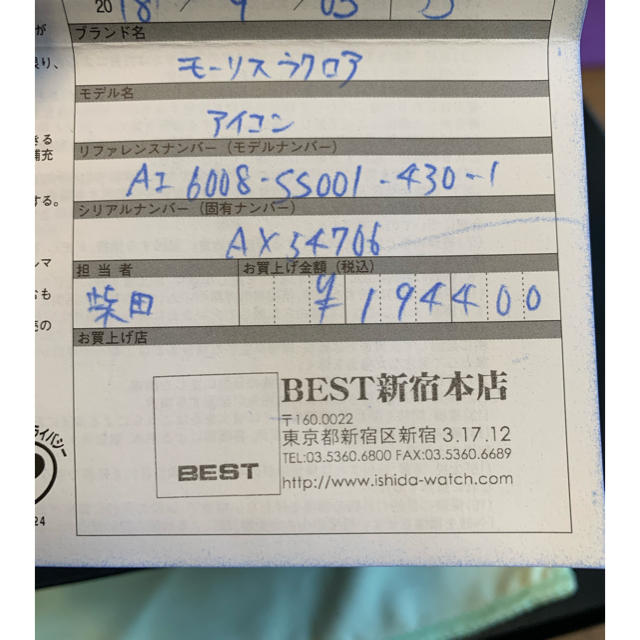 20 18 / 9 / 03
ブランド名
が
モーリスラクロア
限り、
モデル名
アイコン
きる
リファレンスナンバー (モデルナンバー)
補充
AI 6008-SS001-430-1
する。
シリアルナンバー (固有ナンバー)
AX54706
担当者 お買上げ金額 (税込)
柴田 ¥194400
お買上げ店
BEST新宿本店
〒160.0022
東京都新宿区新宿 3.17.12
TEL:03.5360.6800 FAX:03.5360.6689
http://www.ishida-watch.com
BEST
ライバシー
24